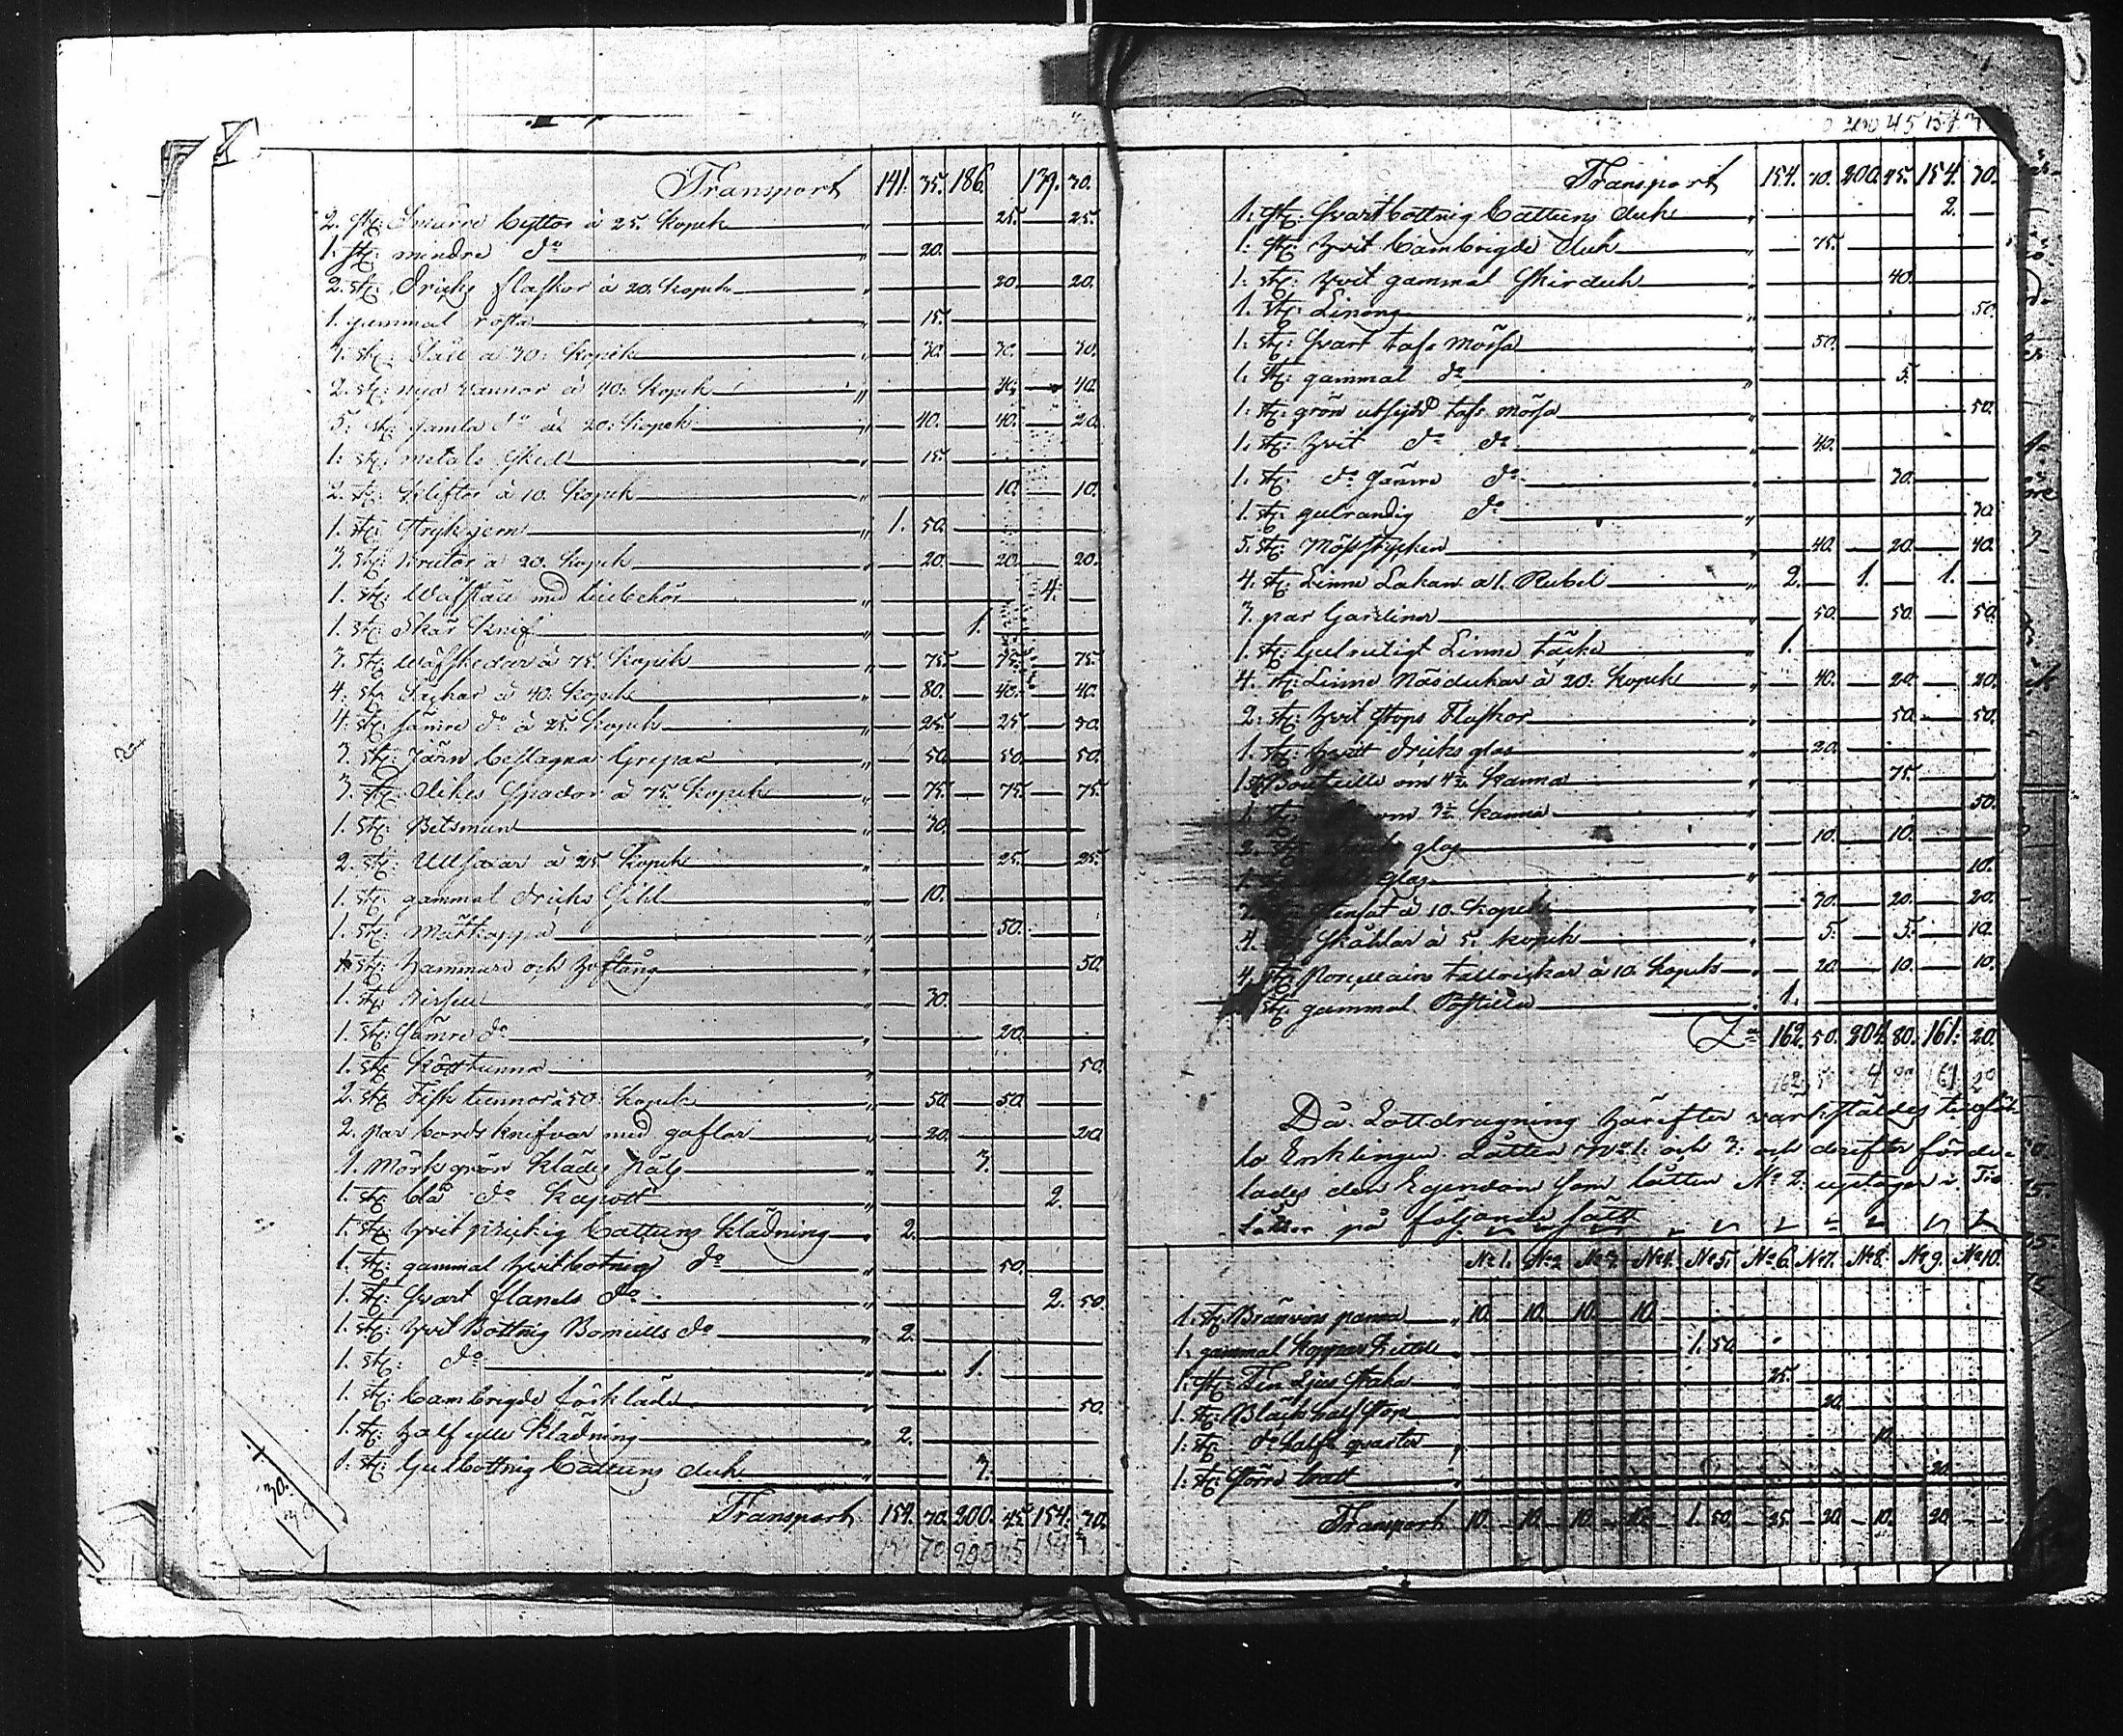 Transport 141. 35. 186. 139. 30.
2. stÿ: Smärre byttor à 25. Kopek " 25. 25.
1. stÿ: mindre do " 20.
2. stÿ: Dricks flaskor à 20. Kopek " 20. 20.
1. gammal " 15.
3. stÿ: à 30. Kopek " 30. 30. 30.
2. stÿ: nya à 40. Kopek " 40. 40.
5. stÿ: gamla do à 20. Kopek " 40. 40. 20.
1. stÿ: metals sked " 15.
2. stÿ: à 10. Kopek " 10. 10.
1. stÿ: Strykjern " 1. 50.
3. stÿ: à 20. Kopek " 20. 20. 20.
1. stÿ: Wäfställ med tillbehör " 4.
1. stÿ: Skär Knif " 1.
3. stÿ: Wäfskedar à 75. Kopek " 75. 75. 75.
4. stÿ: à 40. Kopek " 80. 40. 40.
4. stÿ: sämre do à 25. Kopek " 25. 25. 50.
3. stÿ: Järn beslagna Grepar " 50. 50. 50.
3. stÿ: Dikes Spador à 75. Kopek " 75. 75. 75.
1. stÿ: Betsman " 30.
2. stÿ: Ullsaxar à 25. Kopek " 25. 25.
1. stÿ: gammal Dricks " 10.
1. stÿ: Mattkappa " 50.
stÿ: hammare och hoftång " 50.
1. stÿ: " 30.
1. stÿ: sämre do " 20.
1. stÿ: Kötttunna " 50.
2. stÿ: Fisk tunnor à 50. Kopek " 50. 50.
2. par bords knifvar med gaflar " 20. 20.
1. Mörkgrön Klädes päls " 7.
1. stÿ: blå do Kapott " 2.
1. stÿ: hvit prickig Cattuns Klädning " 2.
1. stÿ: gammal hvitbotnig do " 50.
1. stÿ: svart flanels do " 2. 50.
1. stÿ: hvit Bottnig Bomulls do " 2.
1. stÿ: do " 1.
1. stÿ: Cambrigde förkläde " 50.
1. stÿ: half ylle Klädning " 2.
1. stÿ: Gulbottnig Cattuns duk " 3.
Transport 154. 70. 200. 45. 154. 30.
Transport 154. 70. 200. 45. 154. 30.
1. stÿ: svartbottnig Cattuns duk " 2.
1. stÿ: hvit Cambrigde duk " 75.
1. stÿ: hvit gammal skirduk " 40.
1. stÿ: Linong " 50.
1. stÿ: svart tafs mössa " 50.
1. stÿ: gammal do " 5.
1. stÿ: grön utsydd tafs mössa " 50.
1. stÿ: hvit do do " 40.
1. stÿ: do sämre do " 30.
1. stÿ: gulrandig do " 30.
5. stÿ: Mösstycken " 40. 20. 40.
4. stÿ: Linne Lakan à 1. Rubel " 2. 1. 1.
3. par Gardiner " 50. 50. 50.
1. stÿ: Gulrutigt Linne täcke " 1.
4. stÿ: Linne Näsdukar à 20. Kopek " 40. 20. 20.
2. stÿ: hvit stops Flaskor " 50. 50.
1. stÿ: dricks glas " 20.
1. st Bouteille om 4½ Kanna " 75.
1. om 3½ Kanna " 50.
2. glas " 10. 10.
1. glas " 10.
Stenfat à 10. Kopek " 30. 20. 20.
4. Skåhlar à 5. Kopek " 5. 5. 10.
4. stÿ: Porcellains tallrickar à 10. Kopek " 20. 10. 10.
stÿ: gammal Postilla " 1.
Sa 162. 50. 204. 80. 161. 20.
Då Lottdragning härefter verkställdes tillföl-
lo Enklingen Låtten No 1. och 3. och derefter förde-
lades den Egendom som låtten No 2. upptager i Tio
Låtter på följande sätt
No 1. No 2. No 3. No 4. No 5. No 6. No 7. No 8. No 9. No 10.
1. stÿ: Bränvins panna " 10. 10. 10. 10.
1. gammal Koppar Kittel " 1. 50.
1. stÿ: Ten Ljus staka " 25.
1. stÿ: Bläck half stop " 20.
1. stÿ: do halft quarter " 10.
1. stÿ: större tratt " 20.
Transport 10. 10. 10. 10. 1. 50. 25. 20. 10. 20.